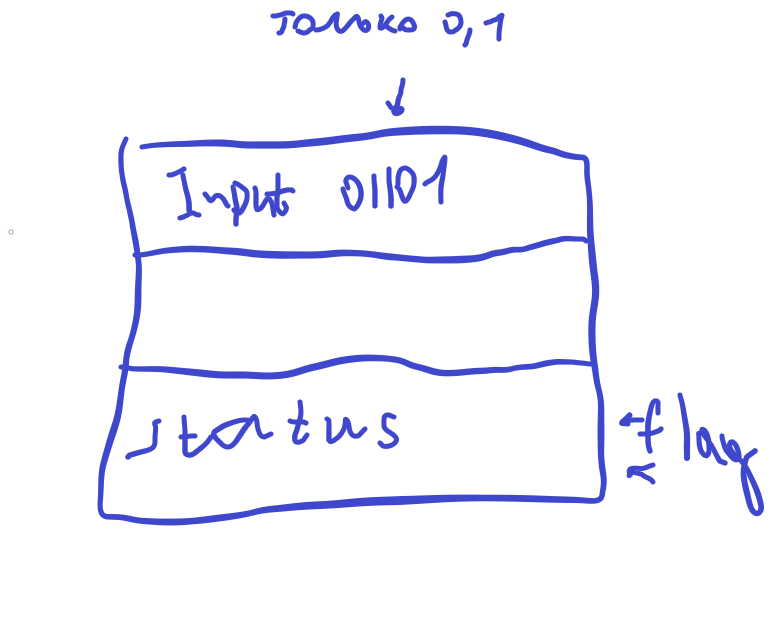 только 0,1
Input 01101
status
flag